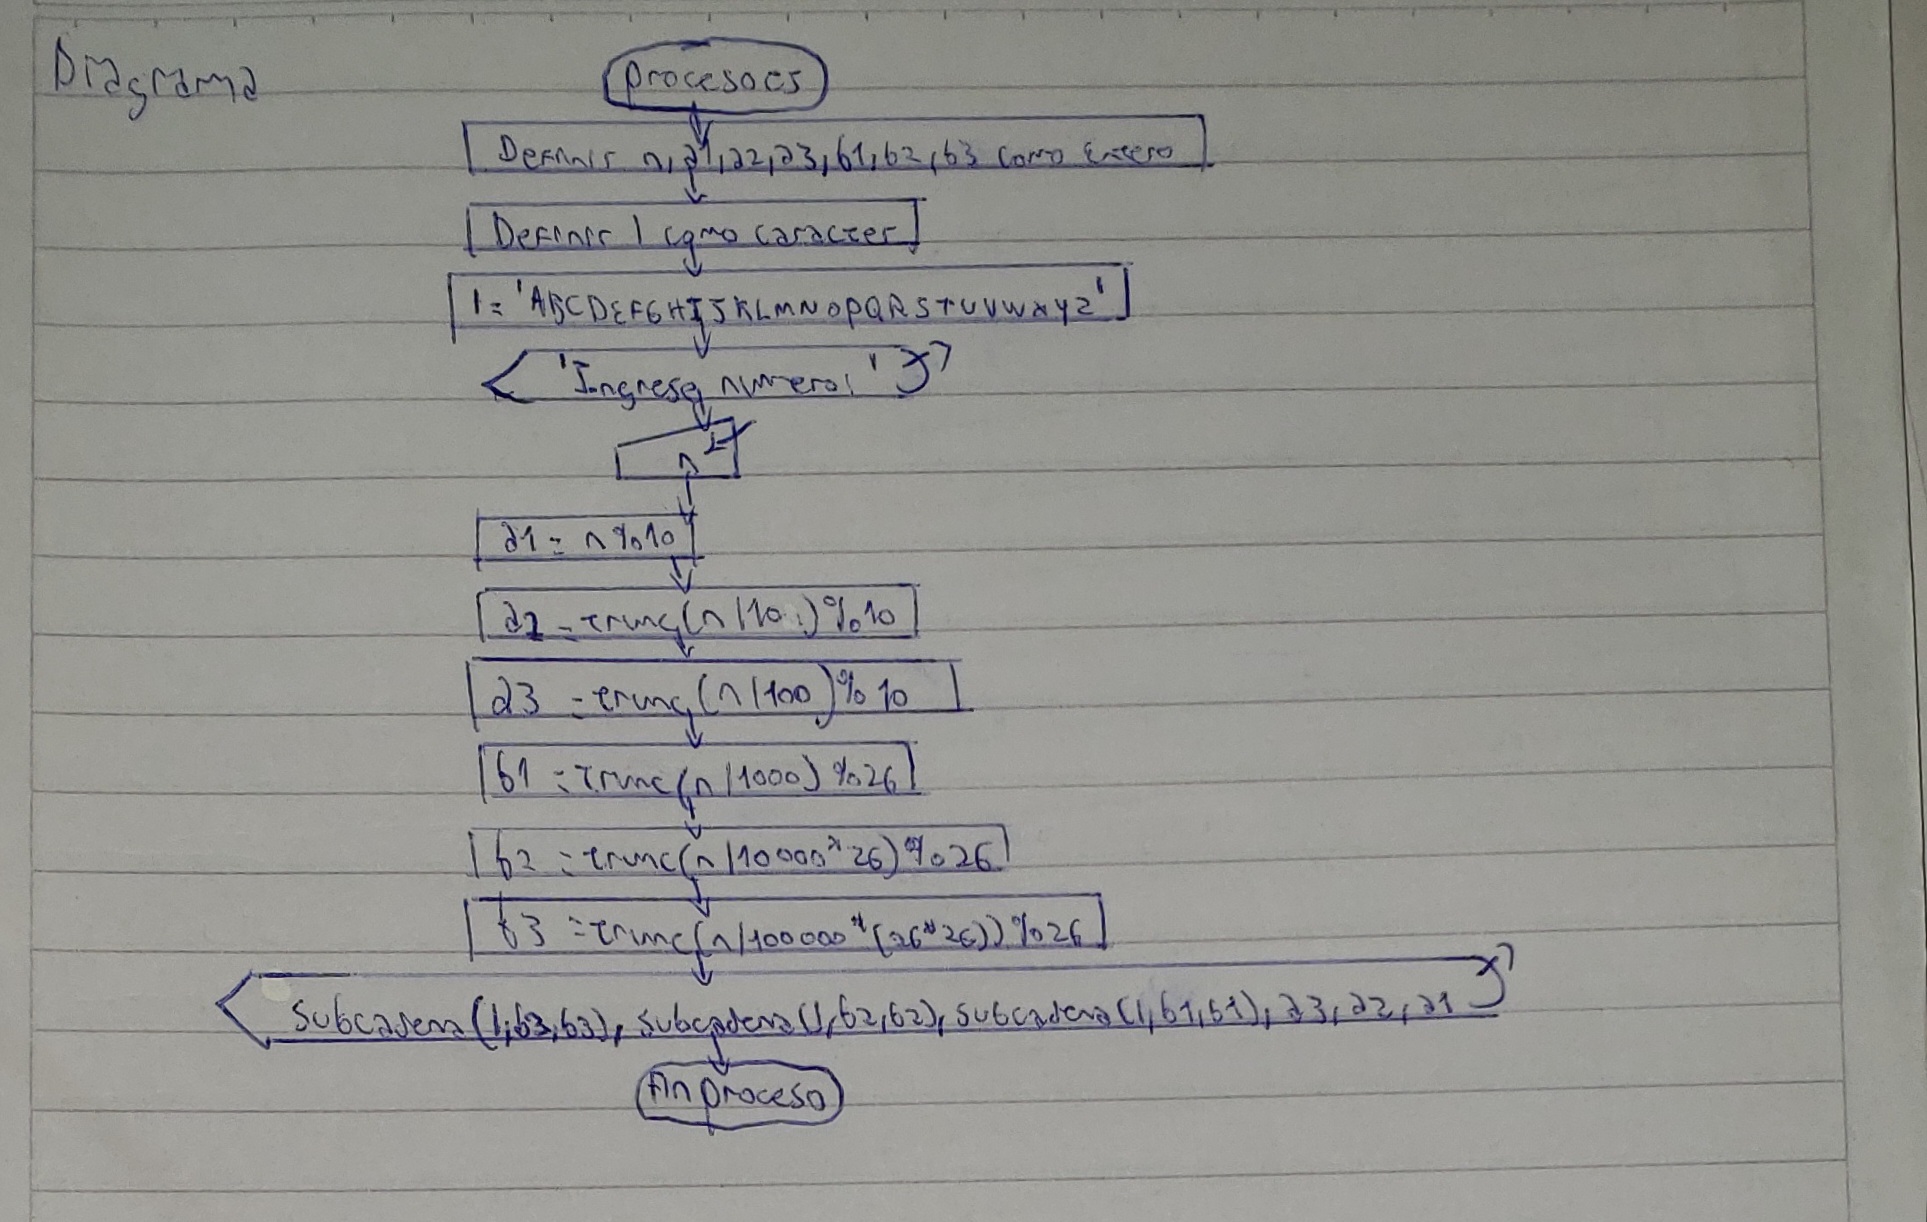 Diagrama
procesoes
Definir n,a1,a2,a3,b1,b2,b3 como Entero
Definir l como caracter
l= 'ABCDEFGHIJKLMNOPQRSTUVWXYZ'
'Ingrese numero: '
n
a1 = n%10
a2 = trunc(n/10)%10
a3 = trunc(n/100)%10
b1 = trunc(n/1000)%26
b2 = trunc(n/10000*26)%26
b3 = trunc(n/100000*(26*26))%26
Subcadena(l,b3,b3), subcadena(l,b2,b2), subcadena(l,b1,b1), a3, a2, a1
fin proceso